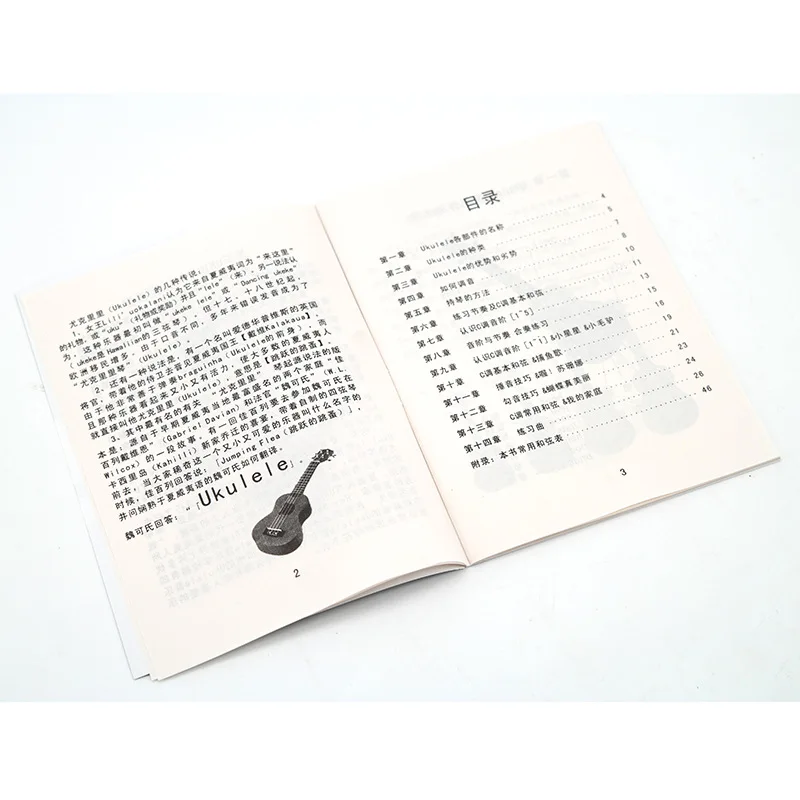 尤克里里（Ukulele）的几种传说：
1、女王Lili' uokalani认为它来自夏威夷词为“来这里
的礼物，或“uku”（礼物或奖励）并且“lele”（来）。另一说法认
为，这种乐器最初叫做“ukeke lele”或“Dancing ukeke”
（ukeke是humalian的三弦琴），由于口音不同，多年来错误发音成为了
“尤克里里琴”（Ukulele）。但十七，十八世纪起，
欧洲移民增多，
2、还有一种说法是，有一个名叫爱德华普维斯的英国
将官，带着他的侍卫去音见夏威夷国王【戴维Kalakaua】
由于他非常善于弹奏braguinha（Ukulele的前身），而夏威夷人
且那种乐器看起来又小又有活力，使大多数的夏威夷人
就直接叫他尤克里里（Ukulele），意思是【跳跃的跳蚤】
3、其中最有名的有关“尤克里里”琴起源说法的版
本是：源自于早期夏威夷当地最富盛名的两个家庭“佳
百列戴维恩”（Gabriel Davian）和法官“魏可氏”（W.L.
Wilcox）的一段故事，有一回佳百列要去参加魏可氏在
卡西里岛（Kahilii）新家乔迁的喜宴，带着自制的四弦琴
前去，当大家稀奇这一个又小又可爱的乐器叫什么名字的
时候，佳百列回答说：「Jumping Flea（跳跃的跳蚤）」，
并问娴熟于夏威夷语的魏可氏如何翻译。
魏可氏回答：“「Ukulele」。
2
目录
第一章 Ukulele各部件的名称 4
第二章 Ukulele的种类 5
第三章 Ukulele的优势和劣势 7
第四章 如何调音 8
第五章 持琴的方法 10
第六章 练习节奏及C调基本和弦 11
第七章 认识C调音阶 [1~5] 13
第八章 音阶与节奏 合奏练习 15
第九章 认识C调音阶 [1~i] &小星星 &小毛驴 16
第十章 C调基本和弦 &捕鱼歌 18
第十一章 捶音技巧 &喔！苏珊娜 19
第十二章 勾音技巧 &蝴蝶真美丽 21
第十三章 C调常用和弦 &我的家庭 23
第十四章 练习曲 24
附录：本书常用和弦表 46
3